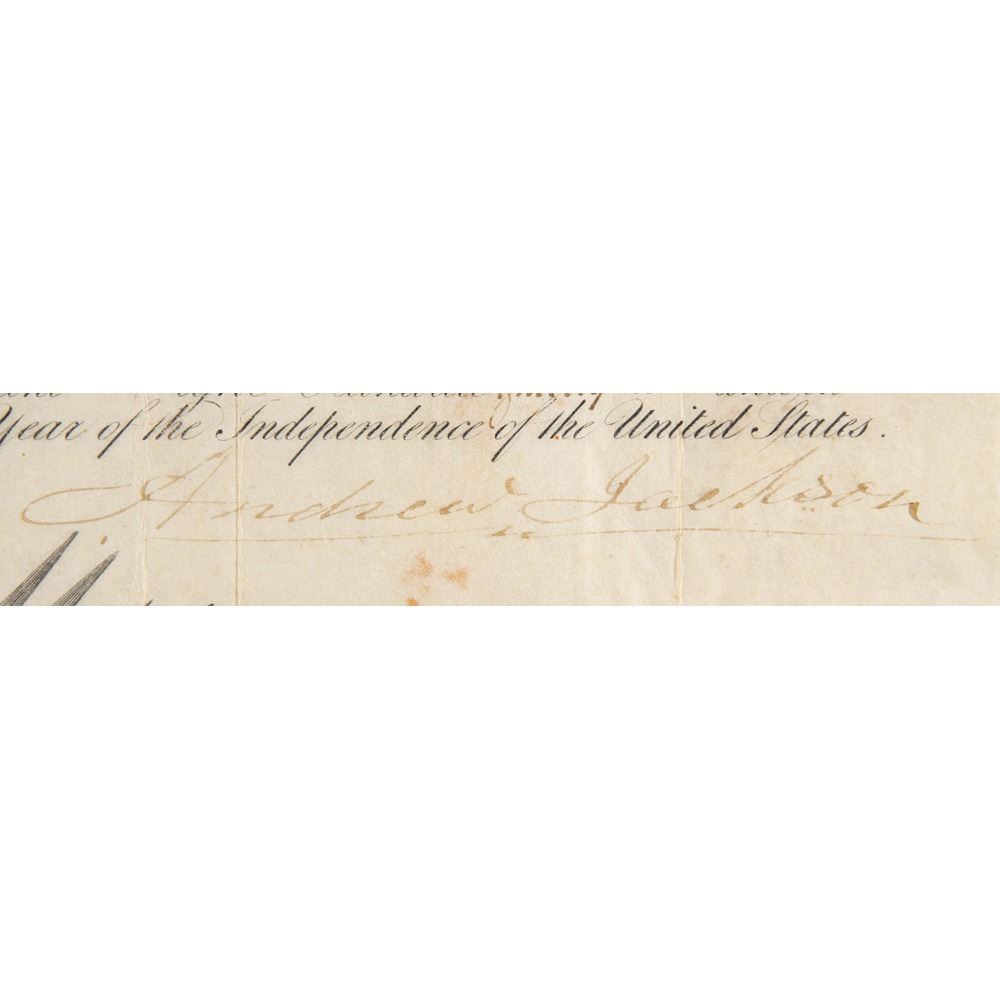 Year of the Independence of the United States.
Andrew Jackson